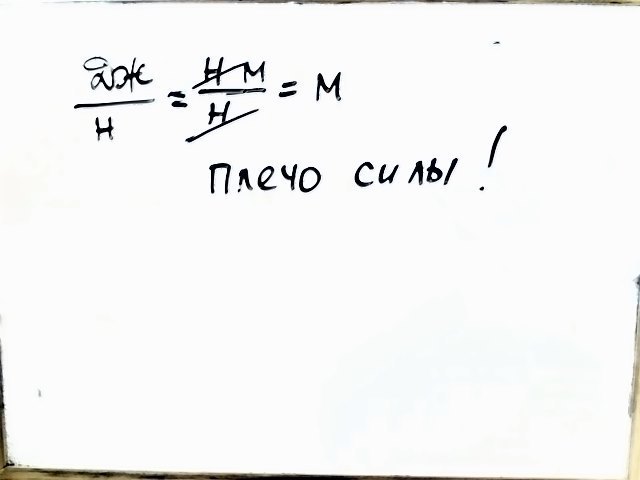 Дж/Н = Н м/Н = м
плечо силы!